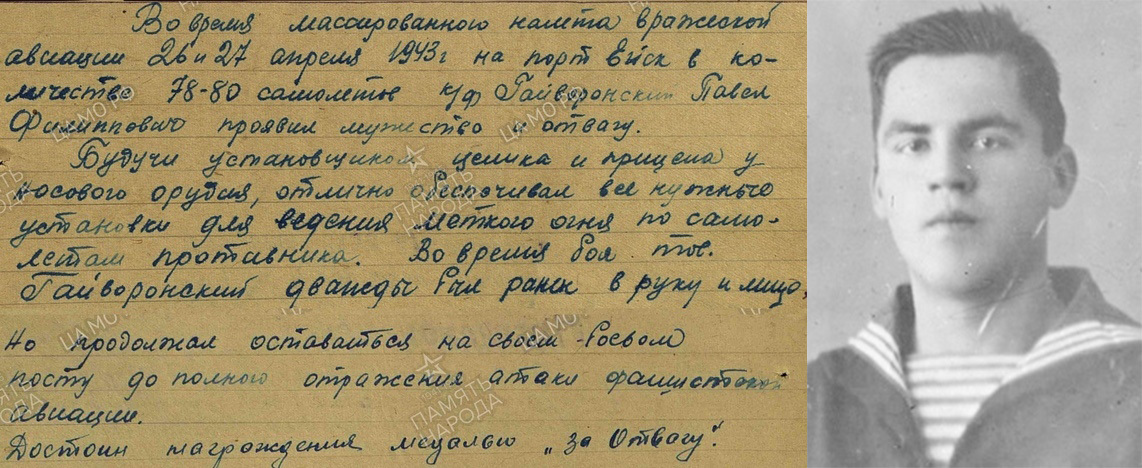 Во время массированного налета вражеской
авиации 26 и 27 апреля 1943г на порт Ейск в ко-
личестве 78-80 самолетов к/ф Гайворонский Павел
Филиппович проявил мужество и отвагу.
Будучи установщиком целика и прицела у
носового орудия, отлично обеспечивал все нужные
установки для ведения меткого огня по само-
летам противника. Во время боя тов.
Гайворонский дважды был ранен в руку и лицо,
но продолжал оставаться на своем боевом
посту до полного отражения атаки фашистской
авиации.
Достоин награждения медалью „за Отвагу".
ЦАМО РФ
ПАМЯТЬ
НАРОДА